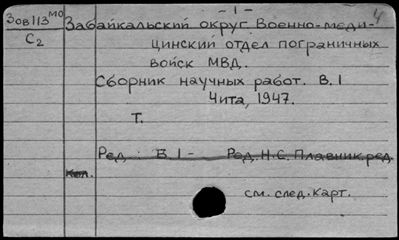 - 1 - 4
Зов113 МО Забайкальский округ Военно-меди-
С2 цинский отдел пограничных
войск МВД.
Сборник научных работ. В. 1
Чита, 1947.
Т.
Ред. Б. 1 - Ред. Н.С. Плавник. ред.
см. след. карт.